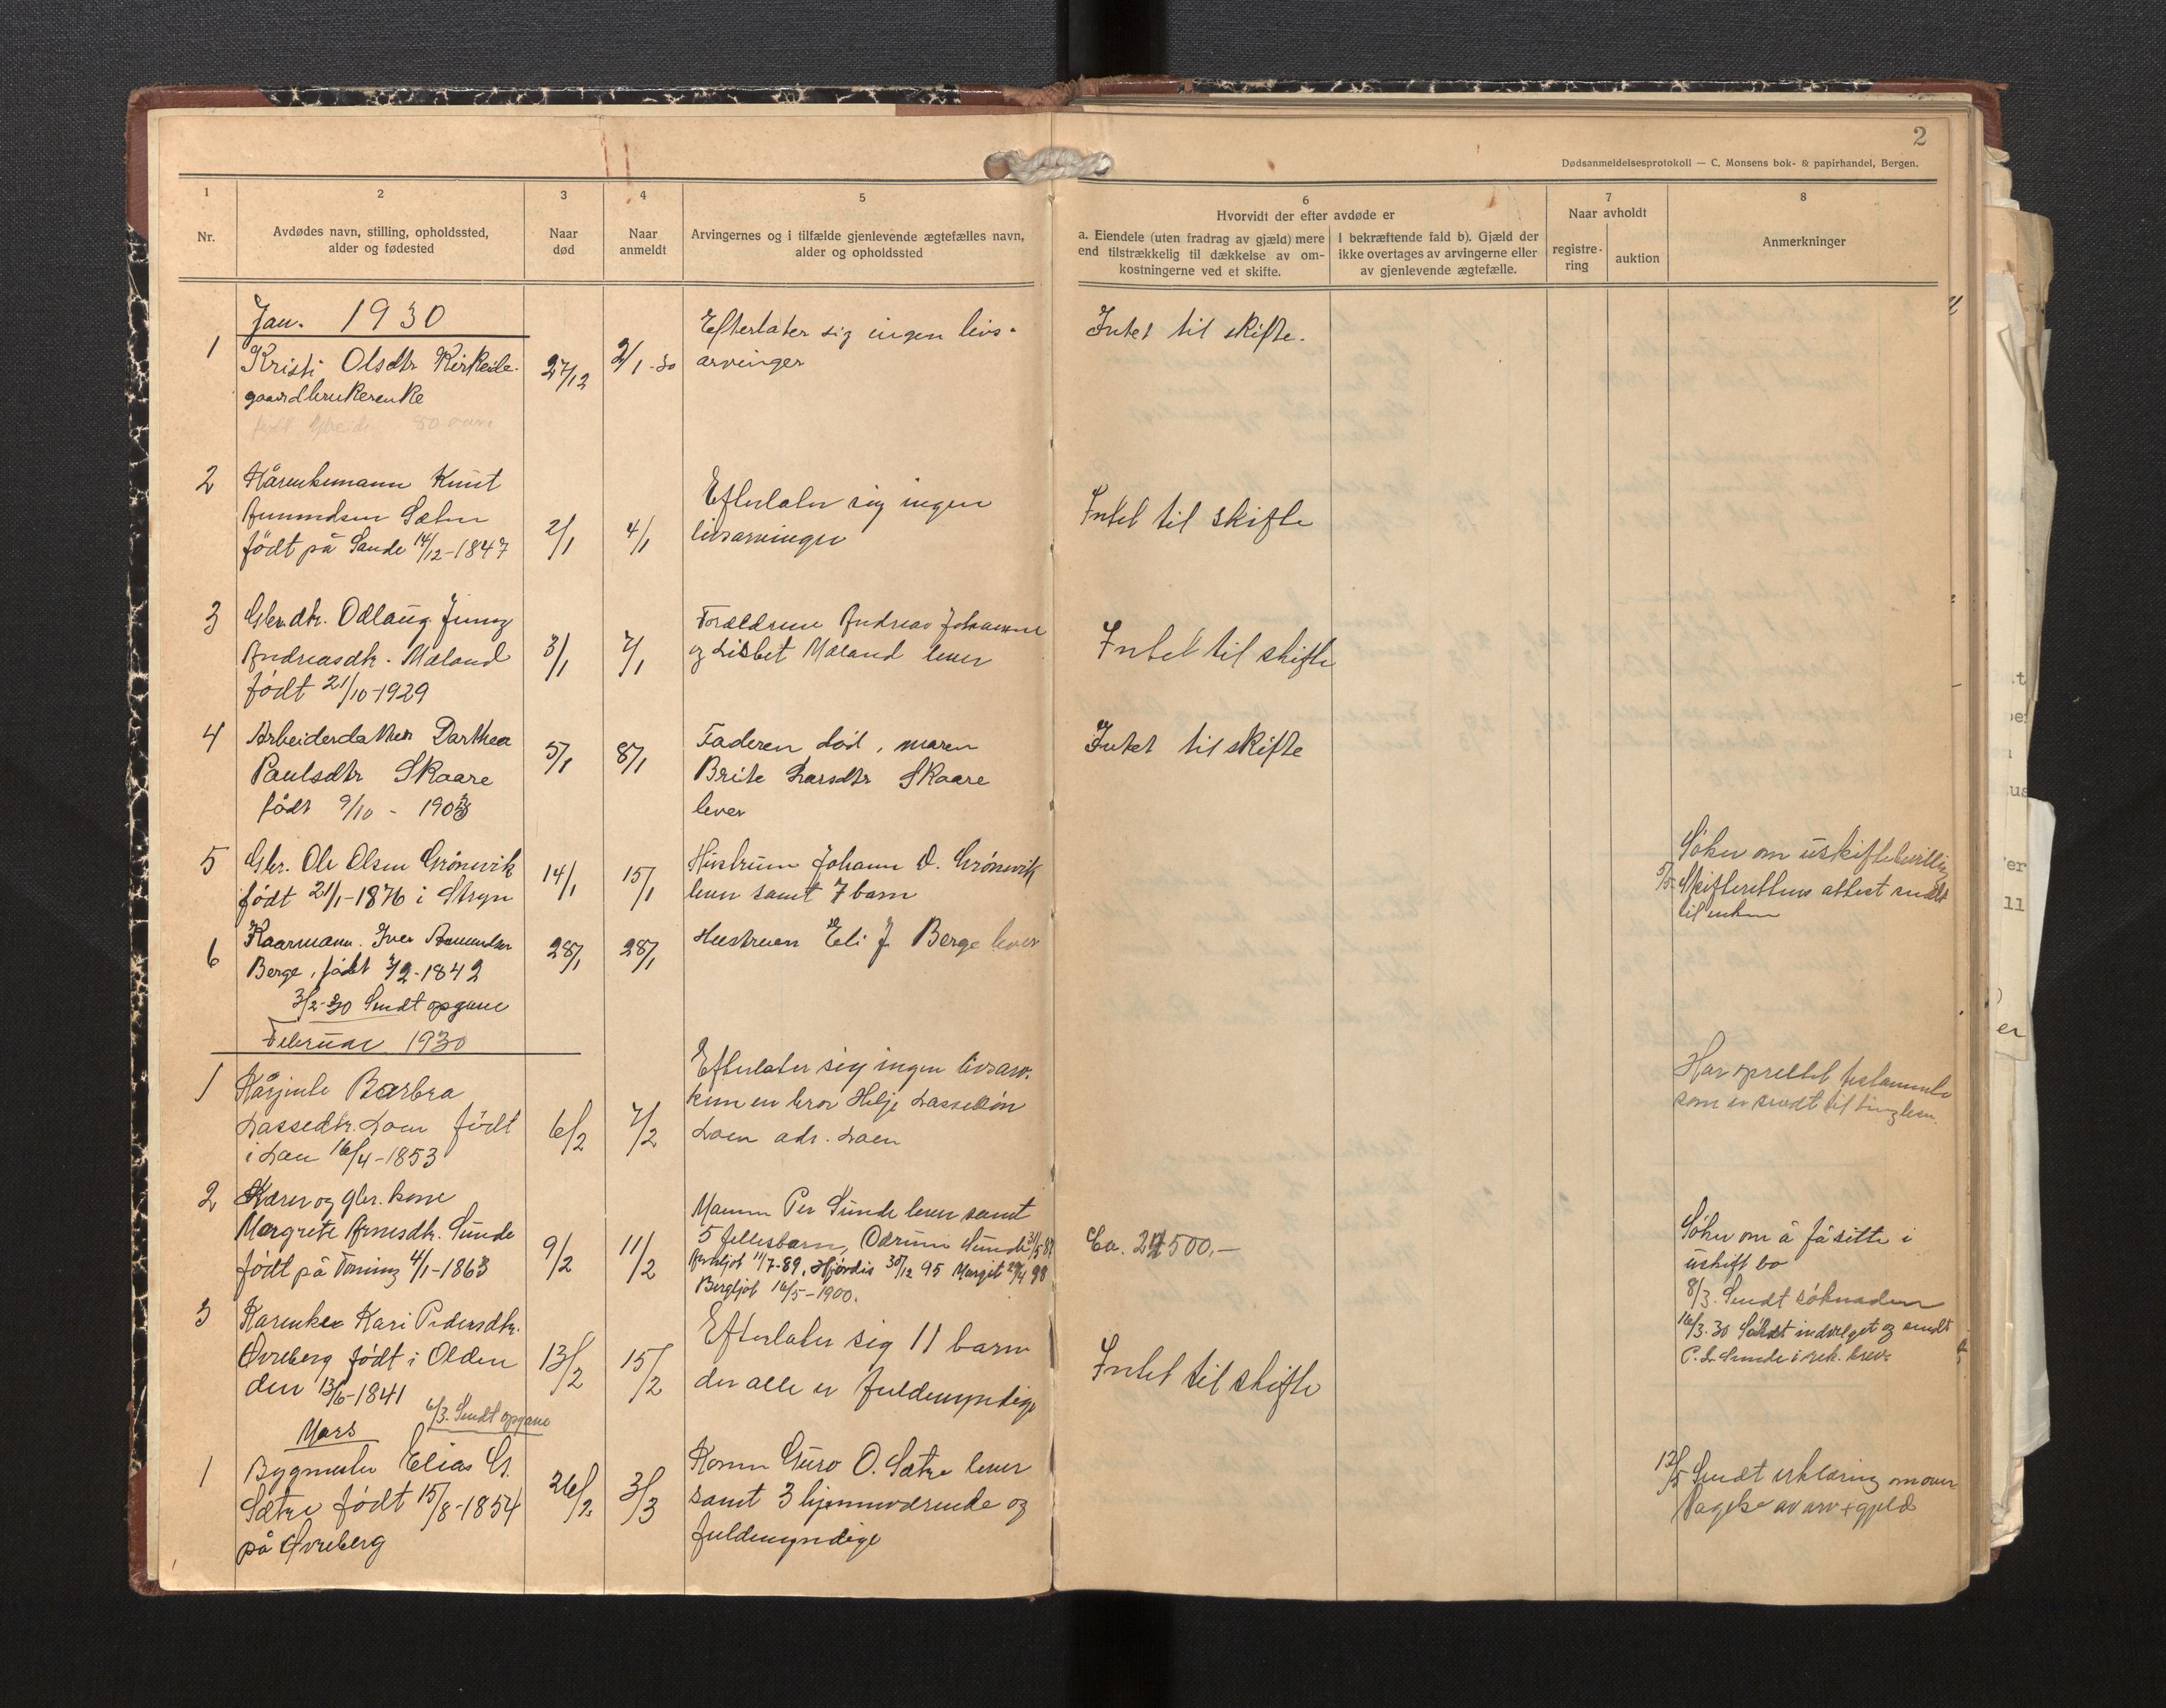 2
Dødsanmeldelsesprotokoll — C. Monsens bok- & papirhandel, Bergen.
1
Nr.
2
Avdødes navn, stilling, opholdssted,
alder og fødested
3
Naar
død
4
Naar
anmeldt
5
Arvingernes og i tilfælde gjenlevende ægtefælles navn,
alder og opholdssted
6
Hvorvidt der efter avdøde er
a. Eiendele (uten fradrag av gjæld) mere
end tilstrækkelig til dækkelse av om-
kostningerne ved et skifte.
I bekræftende fald b). Gjæld der
ikke overtages av arvingerne eller
av gjenlevende ægtefælle.
7
Naar avholdt
registre-
ring
auktion
8
Anmerkninger
Jan. 1930
1
Kristi Olsdtr Kirkeide.
gaardbrukerenke
født 80 aar
27/12
2/1-30
Efterlater sig ingen livs-
arvinger
Intet til skifte.
2
Kårenkemann Knut
Amundsen Sætre
født på Sande 14/12-1847
2/1
4/1
Efterlater sig ingen
livsarvinger
Intet til skifte
3
Gbr.dtr. Odlaug Jenny
Andreasdtr. Mæland
født 21/10-1929
3/1
7/1
Forældrene Andreas Johannes
og Lisbet Mæland lever
Intet til skifte
4
Arbeiderdatter Darthea
Paulsdtr Skaare
født 9/10 - 1903
5/1
8/1
Faderen død, moren
Brite Larsdtr Skaare
lever
Intet til skifte
5
Gbr. Ole Olsen Grönsvik
født 21/1-1876 i Stryn
14/1
15/1
Hustruen Johann O. Grönsvik
lever samt 7 barn
Söker om uskiftebevilling
5/5. Skifterettens attest sendt
til enken
6
Kaarmann. Iver Amundsen
Berge, født 7/2-1842
3/2-30 Sendt opgave
28/1
28/1
Hustruen Eli J. Berge lever
Februar 1930
1
Kårjente Barbra
Lassedtr. Loen født
i Loen 16/4-1853
6/2
7/2
Efterlater sig ingen livsarv.
kun en bror Helje Lassesön
Loen adr. Loen
Har oprettet testamente
som er sendt til tinglesn.
2
Kårer og gbr. kone
Margrete Arnesdtr. Sunde
født på Toning 4/1-1863
9/2
11/2
Mannen Per Sunde lever samt
5 fellesbarn, Sunde 31/5 87
11/7-89, Hjördis 30/12 95 Margit 29/4 98
Bergljot 16/5-1900.
Ca. 24500,-
Söker om å få sitte i
uskift bo
8/3. Sendt söknaden
16/3.30 indvilget og sendt
P. L. Sunde i rek. brev.
3
Karenke Kari Pedersdtr.
Övreberg født i Olden
den 13/6-1841
6/3. Sendt opgave
13/2
15/2
Efterlater sig 11 barn
der alle er fuldemyndige
Intet til skifte
Mars
1
Bygmester Elias G.
Sætre født 15/8-1854
på Övreberg
26/2
3/3
Konen Guro O. Sætre lever
samt 3 hjemmeværende og
fuldemyndige
12/5 Sendt erklæring om over
tagelse av arv + gjeld